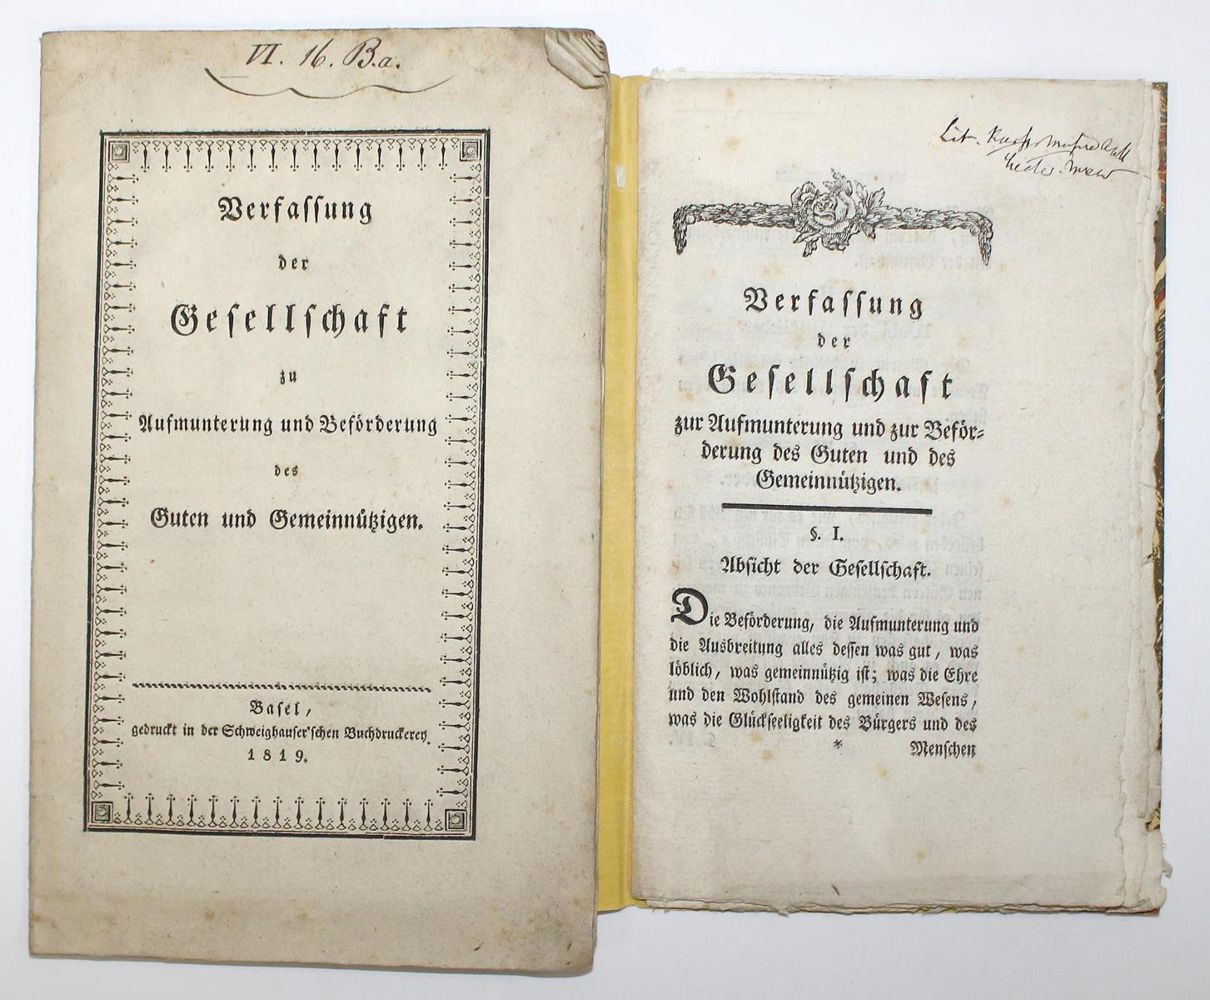 VI. 16. B.a.
Verfassung
der
Gesellschaft
zu
Aufmunterung und Beförderung
des
Guten und Gemeinnützigen.
Basel,
gedruckt in der Schweighauser'schen Buchdruckerey.
1819.
Verfassung
der
Gesellschaft
zur Aufmunterung und zur Beför-
derung des Guten und des
Gemeinnützigen.
§. I.
Absicht der Gesellschaft.
Die Beförderung, die Aufmunterung und
die Ausbreitung alles dessen was gut, was
löblich, was gemeinnützig ist; was die Ehre
und den Wohlstand des gemeinen Wesens,
was die Glückseeligkeit des Bürgers und des
* Menschen